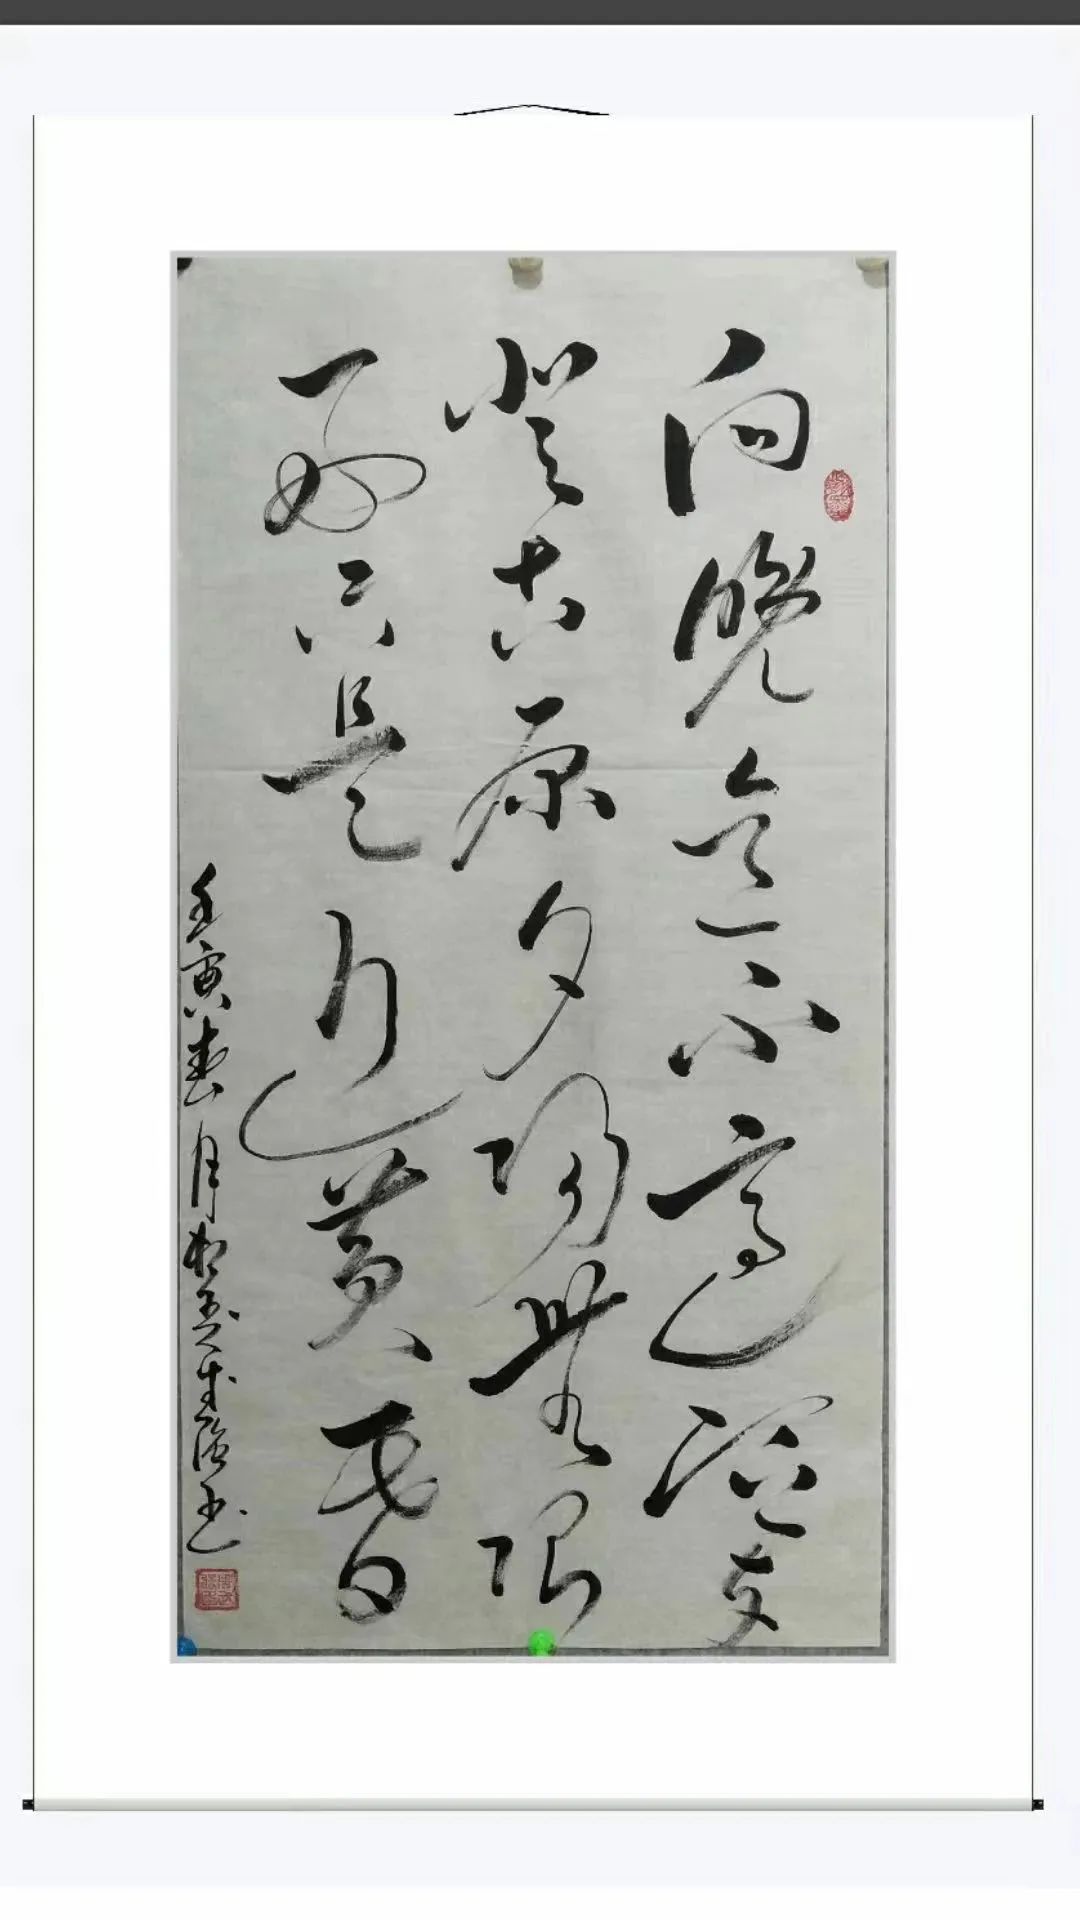 向晚意不適驅车
登古原夕陽無限
好只是近黄昏
壬寅春月